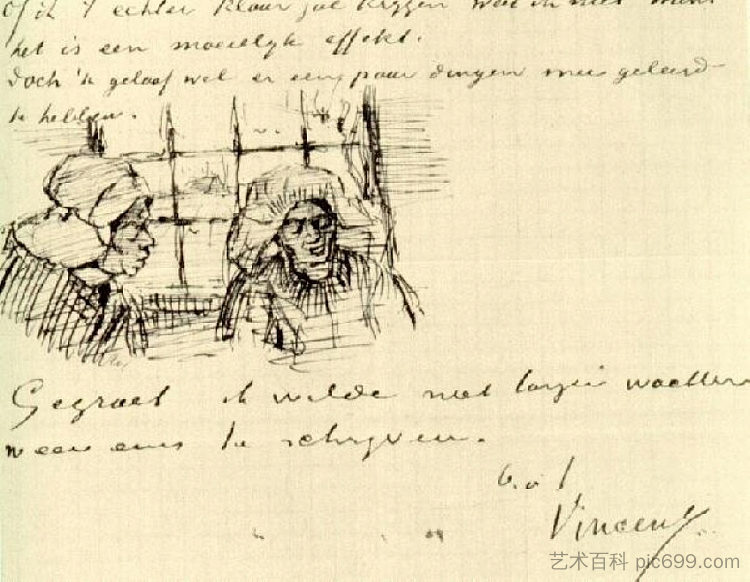 Of ik 't echter klaar zal krijgen weet ik niet want
het is een moeielijk effekt.
Doch 'k geloof wel er een paar dingen mee geleerd
te hebben.
Gegroet ik wilde niet langer wachten
weer eens te schrijven.
b. à t
Vincent
艺术百科 pic699.com